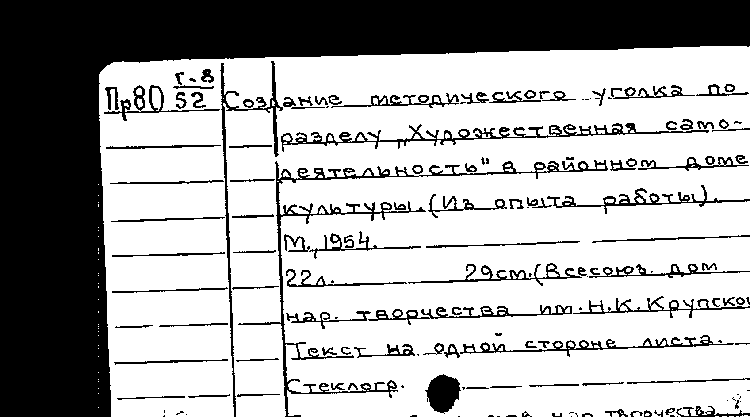 Пр80 Г-8
52 Создание методического уголка по
разделу „Художественная само-
деятельность" в районном доме
культуры. (Из опыта работы).
М., 1954.
22л. 29см. (Всесоюз. дом
нар. творчества им. Н.К. Крупской
Текст на одной стороне листа.
Стеклогр.
нар творчества